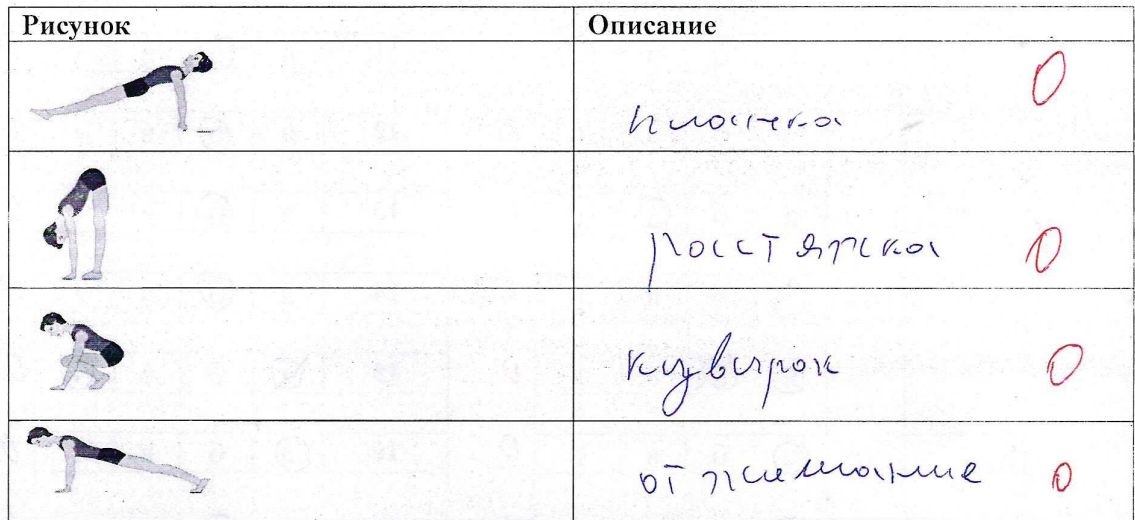 Рисунок Описание
планка 0
росстяжка 0
кувырок 0
отжимание 0